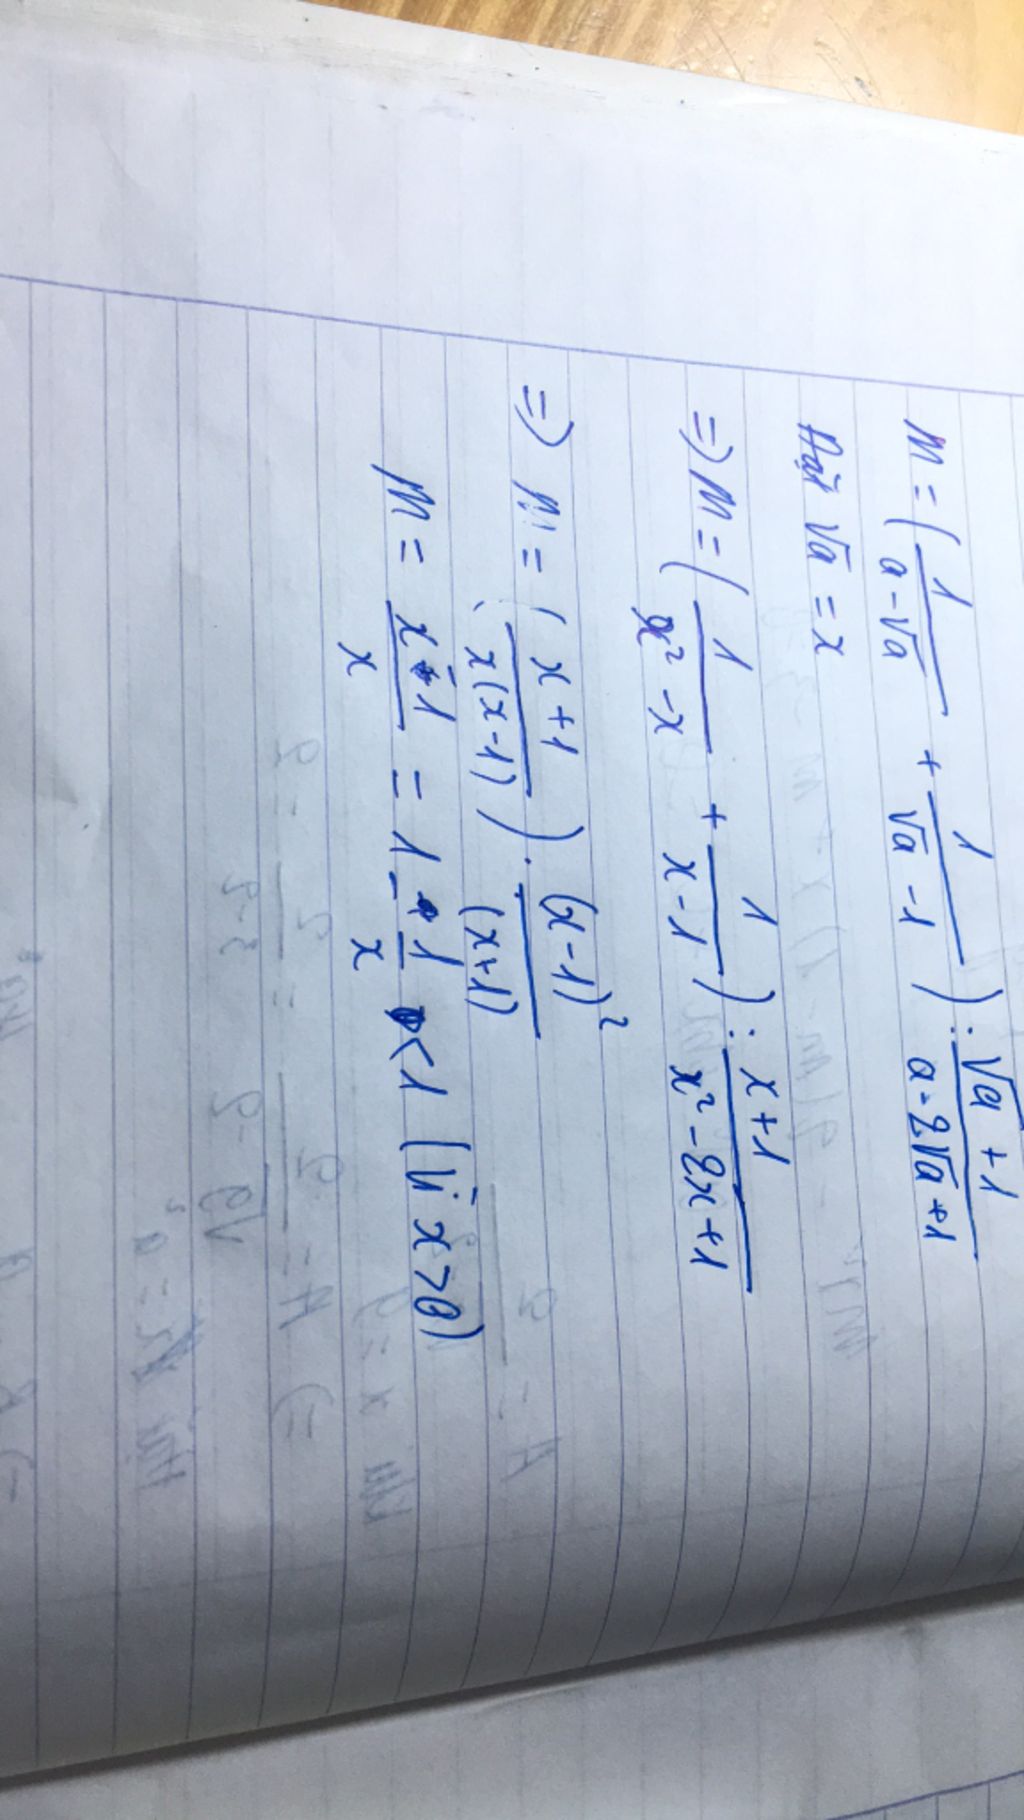 M = ( 1/(a - √a) + 1/(√a - 1) ) : (√a + 1)/(a - 2√a + 1)
Đặt √a = x
=> M = ( 1/(x² - x) + 1/(x - 1) ) : (x + 1)/(x² - 2x + 1)
=> M = ( (x + 1)/(x(x - 1)) ) . (x - 1)²/(x + 1)
M = (x - 1)/x = 1 - 1/x < 1 (Vì x > 0)